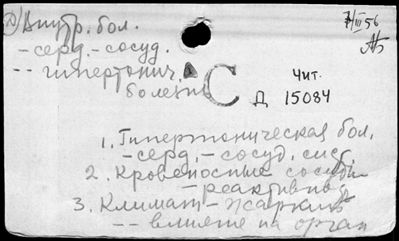 а) Внутр. бол. 7/III 56
- серд. - сосуд.
-- гипертонич. С Чит.
болезнь Д 15084
1. Гипертоническая бол.
- серд. - сосуд. сис.
2. Кровеносные сосуды
- реактивн
3. Климат - жаркий
-- влияние на орган